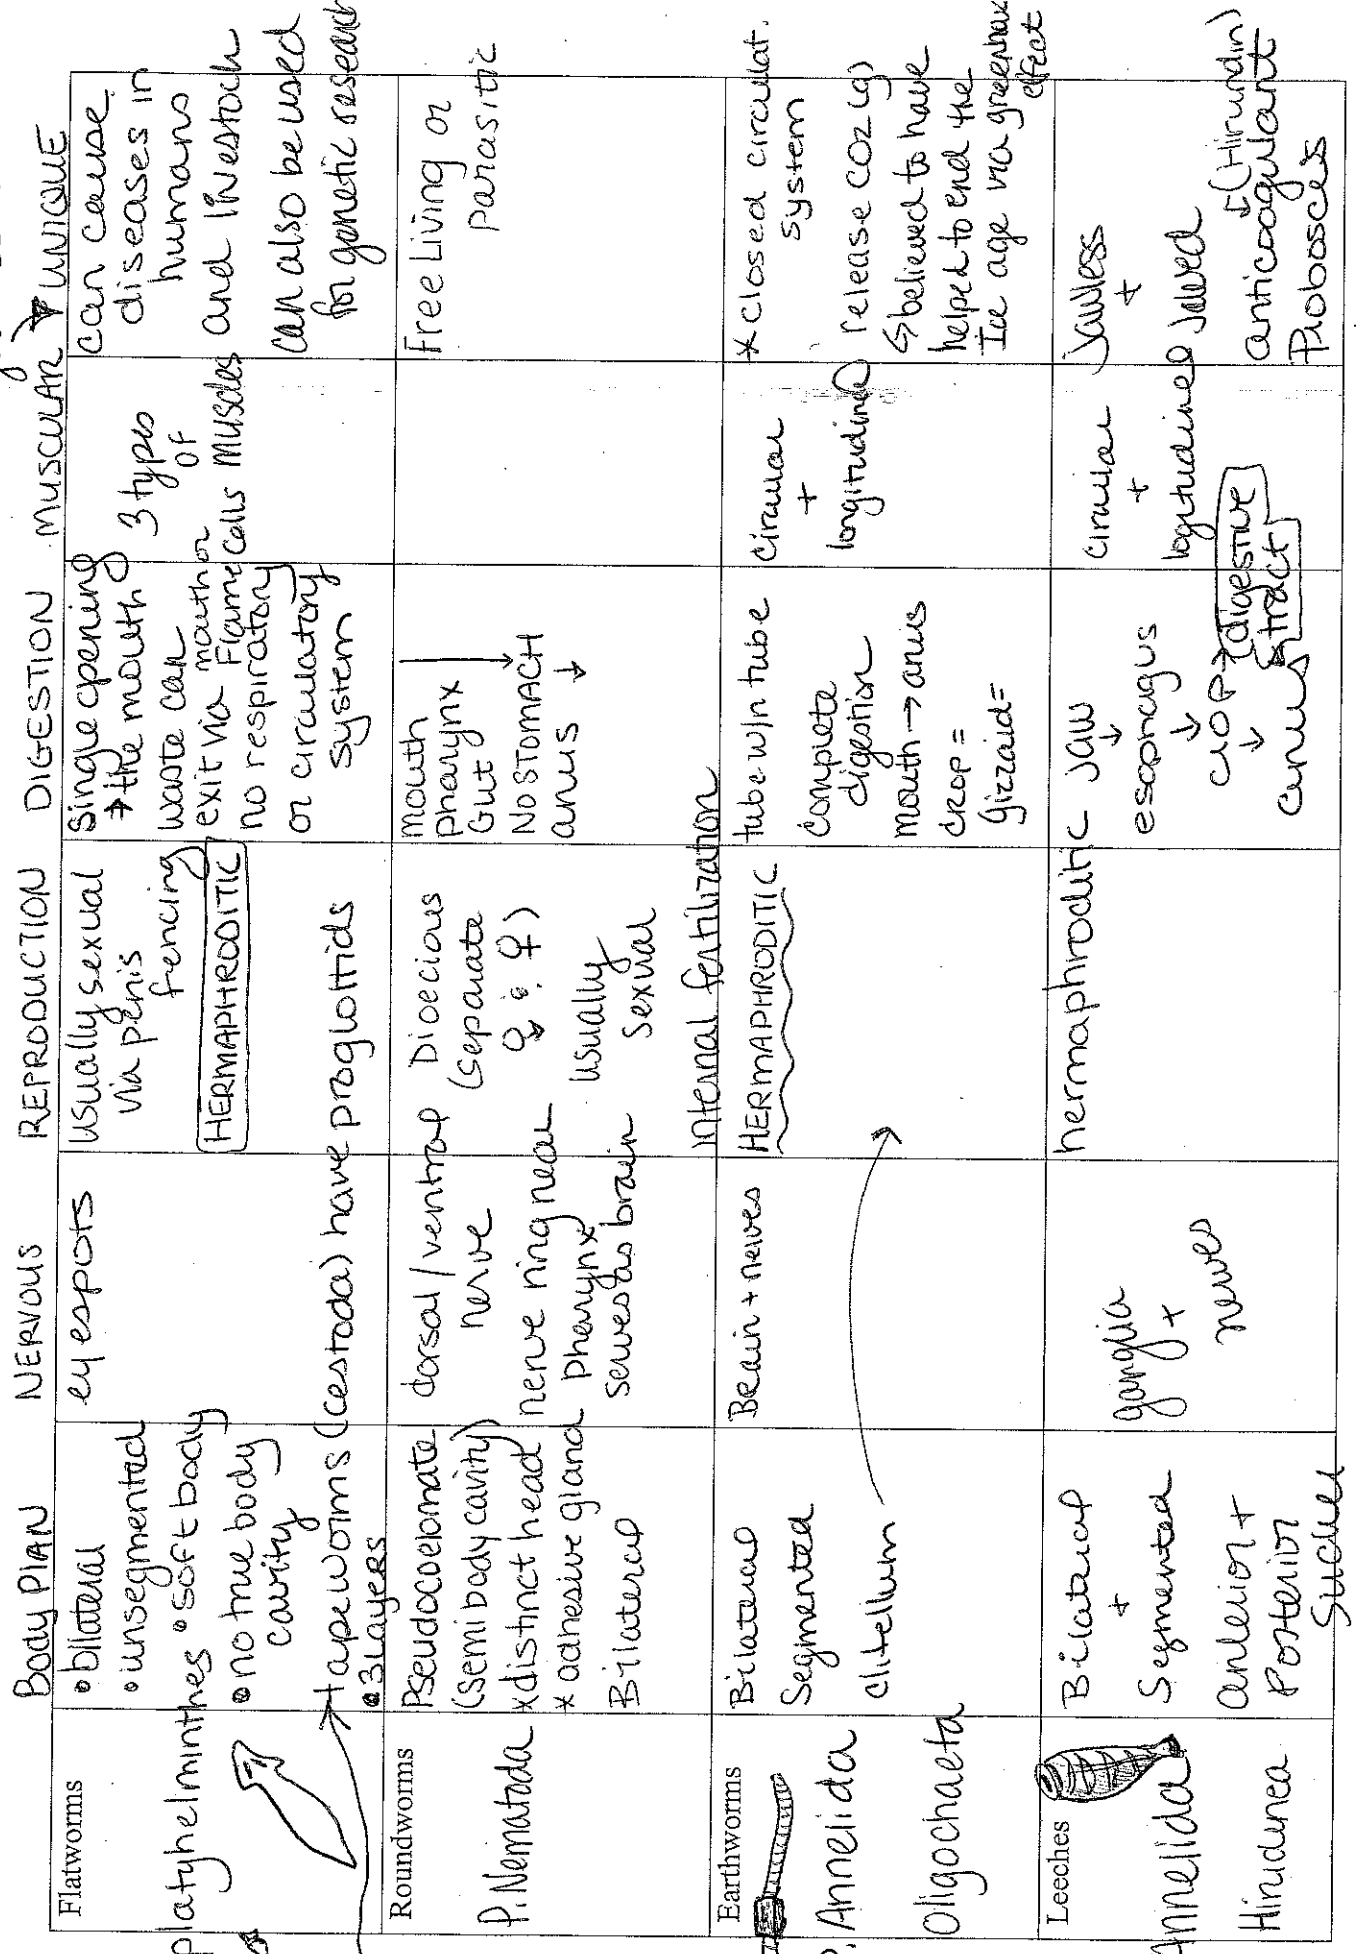 Body PLAN
NERVOUS
REPRODUCTION
DIGESTION
MUSCULAR
UNIQUE
Flatworms
platyhelminthes
• bilateral
• unsegmented
• soft body
• no true body
cavity
→ tapeworms (cestoda) have proglottids
• 3 layers
eyespots
usually sexual
via penis
fencing
HERMAPHRODITIC
Single opening
→ the mouth
waste can
exit via mouth or
Flame cells
no respiratory
or circulatory
system
3 types
of
muscles
can cause
diseases in
humans
and livestock
can also be used
for genetic research
Roundworms
P. Nematoda
Pseudocoelomate
(semi body cavity)
x distinct head
x adhesive gland
Bilateral
dorsal/ventral
nerve
nerve ring near
pharynx
serves as brain
Dioecious
(separate
♀ : ♀)
usually
sexual
internal fertilization
mouth
pharynx
Gut
NO STOMACH
anus ↓
Free Living or
parasitic
Earthworms
P. Annelida
Oligochaeta
Bilateral
Segmented
clitellum
Brain + nerves
HERMAPHRODITIC
tube w/in tube
complete
digestion
mouth → anus
crop =
gizzard =
circular
+
longitudinal
* closed circulat.
system
release CO2 (g)
↳ believed to have
helped to end the
Ice age via greenhouse
effect
Leeches
Annelida
Hirudinea
Bilateral
+
Segmented
anterior +
Posterior
Sucker
ganglia
+
nerves
hermaphroditic
jaw
↓
esophagus
↓
crop → digestive
tract
↓
anus
circular
+
logitudinal
jawless
+
jawed
↓ (Hirundin)
anticoagulant
Probosces